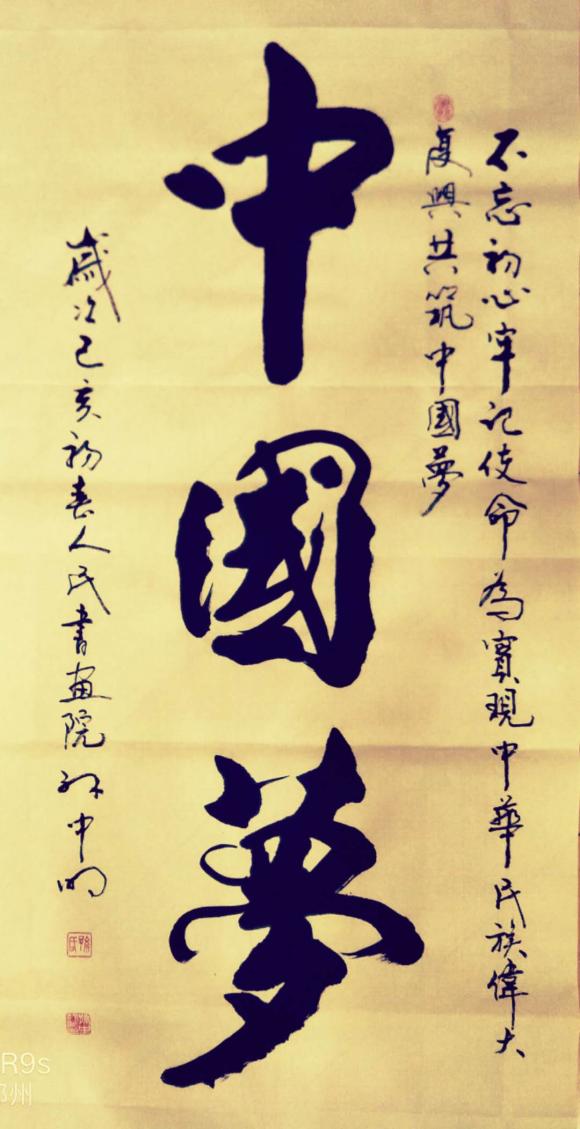 不忘初心牢记使命為實現中華民族偉大
复興共筑中國夢
中國夢
歲次己亥初春人民書画院孙中明
R9s
州